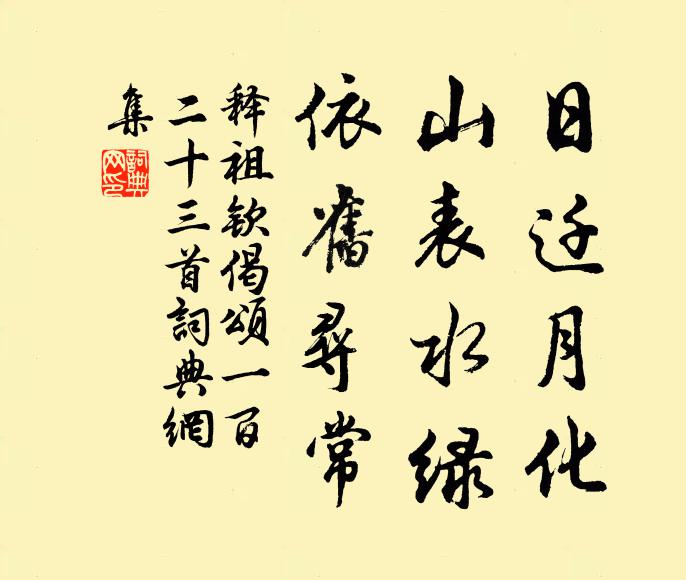 日迁月化
山表水绿
依舊尋常
释祖钦偈頌一百
二十三首詞典網
集
詞典网印